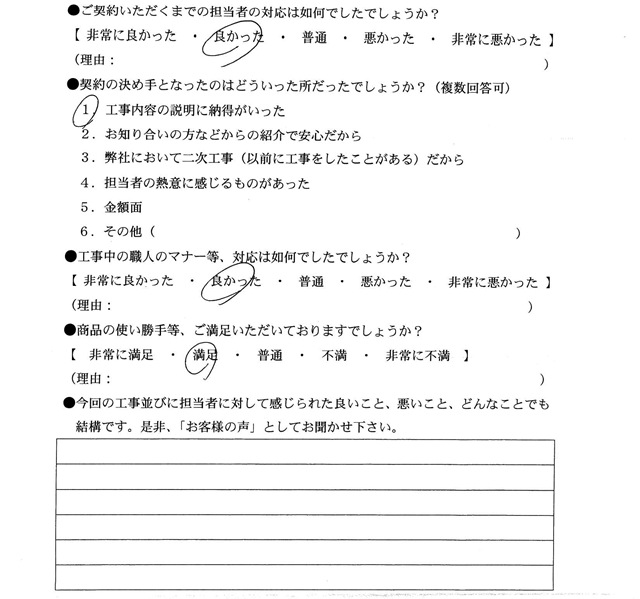 ●ご契約いただくまでの担当者の対応は如何でしたでしょうか？
【 非常に良かった ・ 良かった ・ 普通 ・ 悪かった ・ 非常に悪かった 】
（理由： ）
●契約の決め手となったのはどういった所だったでしょうか？（複数回答可）
1 工事内容の説明に納得がいった
2．お知り合いの方などからの紹介で安心だから
3．弊社において二次工事（以前に工事をしたことがある）だから
4．担当者の熱意に感じるものがあった
5．金額面
6．その他（ ）
●工事中の職人のマナー等、対応は如何でしたでしょうか？
【 非常に良かった ・ 良かった ・ 普通 ・ 悪かった ・ 非常に悪かった 】
（理由： ）
●商品の使い勝手等、ご満足いただいておりますでしょうか？
【 非常に満足 ・ 満足 ・ 普通 ・ 不満 ・ 非常に不満 】
（理由： ）
●今回の工事並びに担当者に対して感じられた良いこと、悪いこと、どんなことでも
結構です。是非、「お客様の声」としてお聞かせ下さい。